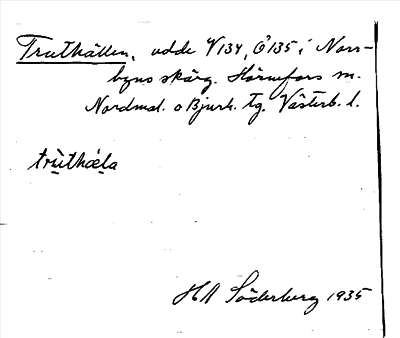 Truthällen, udde V134, Ö135 i Norr-
byns skärg. Hörnefors sn.
Nordmal. o Bjurh. tg. Västerb. l.
trùthæ̀la
HA Söderberg 1935